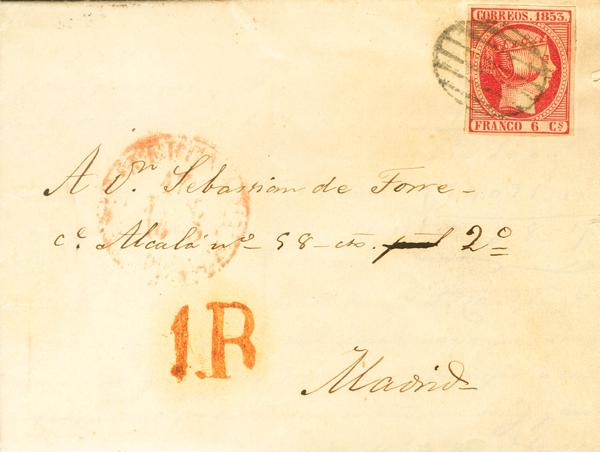 CORREOS. 1853.
FRANCO 6 Cs
A Dn Sebassian de Torre
c. Alcalá nº 58 cto. 2º
1.R
Madrid